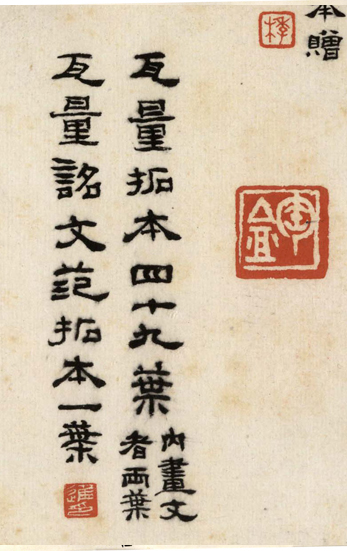 本贈
瓦量拓本四十九葉
內畫文
者兩葉
瓦量詺文范拓本一葉